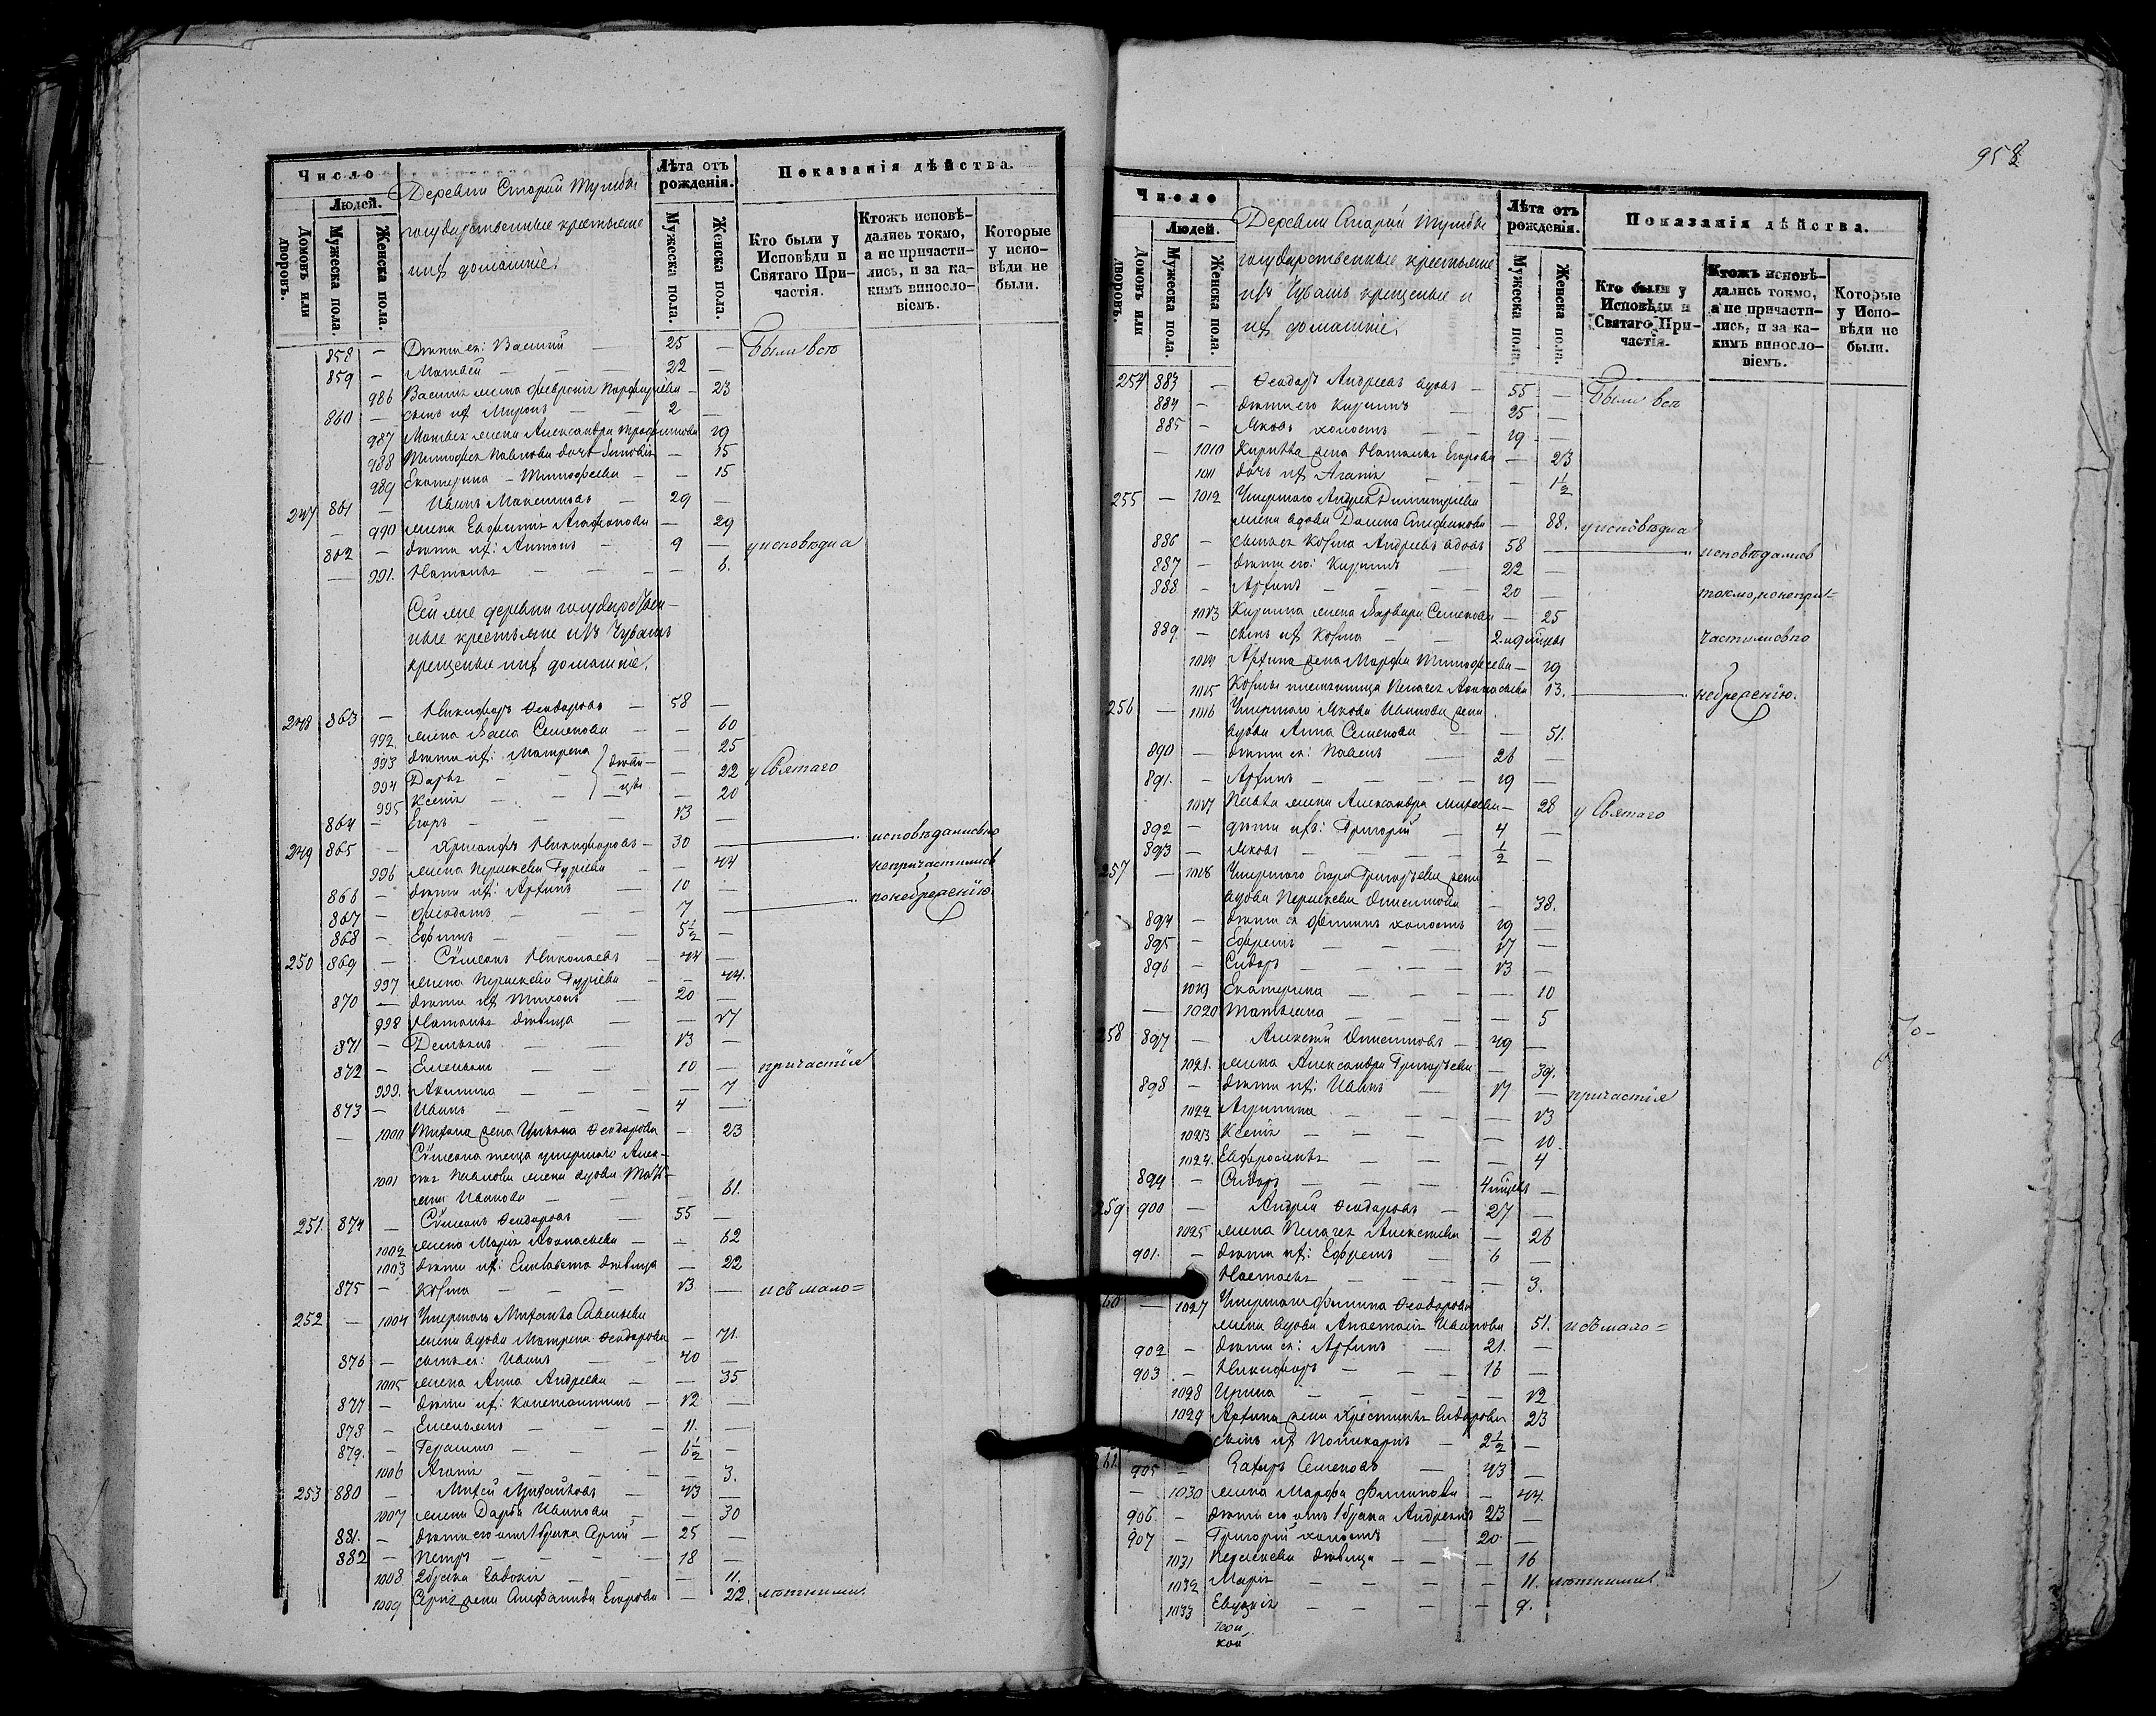 Число
Людей.
Домовъ или дворовъ.
Мужеска пола.
Женска пола.
Деревни Старой Тумбы
государственные крестьяне
и их домашніе.
Лѣта отъ рожденія.
Мужеска пола.
Женска пола.
Показанія дѣйства.
Кто были у Исповѣди и Святаго Причастія.
Ктожъ исповѣдались токмо, а не причастились, и за какимъ винословіемъ.
Которые у исповѣди не были.
858 — Дѣти ея: Василій — 25 — Были всѣ
859 — Матвей — 22 —
986 Василія жена Февронія Порфирьева — 23
860 — сынъ их Миронъ — 2 —
987 Матвея жена Александра Трофимова 19
988 Тимофея Павлова дочь Зиновія — 15
989 Екатерина — Тимофеева — — 15
247 861 — Иванъ Максимовъ — 29 —
— 990 жена Евфимія Агафонова — 29
862 — дѣти их: Антонъ — 9 — у исповѣди а
— 991. Наталья — — — 6.
Сей же деревни государствен-
ные крестьяне изъ Чувашъ
крещеные и их домашніе.
248 863 — Никифоръ Ѳеодоровъ — 58 —
992. жена Васса Семенова — — 60
993 дѣти их: Матрена — 25
994 Дарья — дѣви- — 22 у Святаго
995 Ксенія — — цы — 20
864 — Егоръ — — — 13 —
249 865 — Хрисанфъ Никифоровъ — 30 — исповѣдались но
996 жена Параскева Гурьева — 44 не причастились
866 — дѣти их: Архипъ — 10 —
867 — Ѳеодотъ — — 7 — по небреженію.
868 — Ефимъ — — 5½ —
250 869 — Сѵмеонъ Николаевъ — 44 —
997 жена Параскева Гурьева — — 44.
870 — дѣти их Тихонъ — 20 —
998 Наталья дѣвица — — 17
871 — Демьянъ — — 13 —
872 — Емельянъ — — 10 — причастія
999. Акилина — — — 7
873 — Иванъ — — — 4 —
— 1000 Тихона жена Ульяна Ѳеодорова — 23
Сѵмеона теща умершаго Алек-
1001 сея Павлова жена вдова Тать-
яна Иванова — — — 61.
251. 874 — Сѵмеонъ Ѳеодоровъ — 55 —
1002 жена Марія Аѳанасьева — — 62
1003 дѣти их: Елисавета дѣвица — 22
875 — Козма — — — 13 — и съ мало=
252 — 1004 Умершаго Михаила Савельева
жена вдова Матрена Ѳеодорова — 71.
876 — сынъ ея: Иванъ — — 40 —
1005 жена Анна Андреева — — 35
877 — дѣти их: Константинъ — 12 —
878 — Емельянъ — — — 11. —
879. — Герасимъ — — 6½ —
1006 Агафія — — — 3.
253 880 — Михей Михайловъ — 43 —
1007 жена Дарья Иванова — — 30
881. — дѣти его отъ 1 брака Сергій — 25 —
882 — Петръ — — — 18 —
1008 2 брака Евдокія — — — 11.
1009 Сергія жена Стефанида Егорова — 22. лѣтними.
958
Число
Людей.
Домовъ или дворовъ.
Мужеска пола.
Женска пола.
Деревни Старой Тумбы
государственные крестьяне
изъ Чувашъ крещеные и
их домашніе.
Лѣта отъ рожденія.
Мужеска пола.
Женска пола.
Показанія дѣйства.
Кто были у Исповѣди и Святаго Причастія.
Ктожъ исповѣдались токмо, а не причастились, и за какимъ винословіемъ.
Которые у Исповѣди не были.
254 883 — Ѳеодоръ Андреевъ вдовъ — 55 — Были всѣ
884 — дѣти его Кириллъ — 25 —
885 — Яковъ холостъ — — 19 —
— 1010 Кирилла жена Наталья Егорова — 23
1011 дочь их Агафія — — — 1½
255 — 1012 Умершаго Андрея Димитріева
жена вдова Домна Стефанова — 88. у исповѣди а
886 — сынъ ея Козма Андреевъ вдовъ 58 — исповѣдались
887 — дѣти его: Кириллъ — 22 —
888 — Архипъ — — 20 — токмо, но непри=
1013 Кирилла жена Варвара Семенова — 25
889. — сынъ их Козма — — 2 недѣли — частились по
1014 Архипа жена Марфа Тимофеева — 19
1015 Козмы племянница Пелагея Аѳанасьева 13. — небреженію.
256 — 1016 Умершаго Якова Иванова жена
вдова Анна Семенова — — 51.
890 — дѣти ея: Павелъ — 26 —
891. — Архипъ — — — 19 —
1017 Павла жена Александра Михеева — 28 у Святаго
892 — дѣти ихъ: Григорій — 4 —
893 — Яковъ — — — ½ —
257 — 1018 Умершаго Егора Григорьева жена
вдова Параскева Онисимова — 38.
894 — дѣти ея Филиппъ холостъ 19 —
895 — Ефремъ — — — 17 —
896 — Сидоръ — — — 13 —
1019 Екатерина — — — — 10
— 1020 Татьяна — — — — 5
258 897 — Алексѣй Онисимовъ — 49 —
1021. жена Александра Григорьева — 39.
898 — дѣти их: Иванъ — 17 — причастія
1022 Агрипина — — — 13
1023 Ксенія — — — — 10
1024. Евфросинья — — — 4
899 — Сидоръ — — — 4 мѣсяц. —
259 900 — Андрей Ѳеодоровъ — 27 —
1025 жена Пелагея Алексѣева — 26
901. — дѣти их: Ефремъ — 6 —
Настасья — — — — 3.
60 — 1027 Умершаго Филипа Ѳеодорова
жена вдова Анастасія Иванова 51. и съ мало=
902 — дѣти ея: Архипъ — 21. —
903 — Никифоръ — — 16 —
1028 Ирина — — — — 12
1029 Архипа жена Хрестинья Сидорова 23
сынъ их Поликарпъ — 2½ —
61. 905 — Захаръ Семеновъ — 43 —
— 1030 жена Марфа Филипова — 44.
906. — дѣти его отъ 1 брака Андреянъ 23 —
907 — Григорій холостъ — 20 —
1031 Параскева дѣвица — — — 16
1032 Марія — — — — 11. лѣтними.
1033 Евдокія — — — — 9.
кой